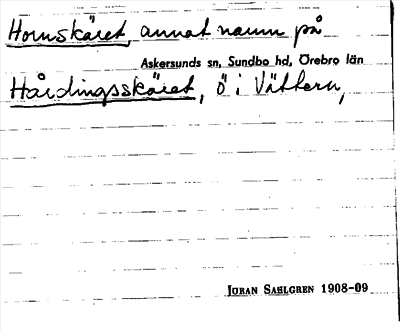 Hornskäret, annat namn på
Askersunds sn, Sundbo hd, Örebro län
Hårdingsskäret, ö i Vättern,
JÖRAN SAHLGREN 1908-09